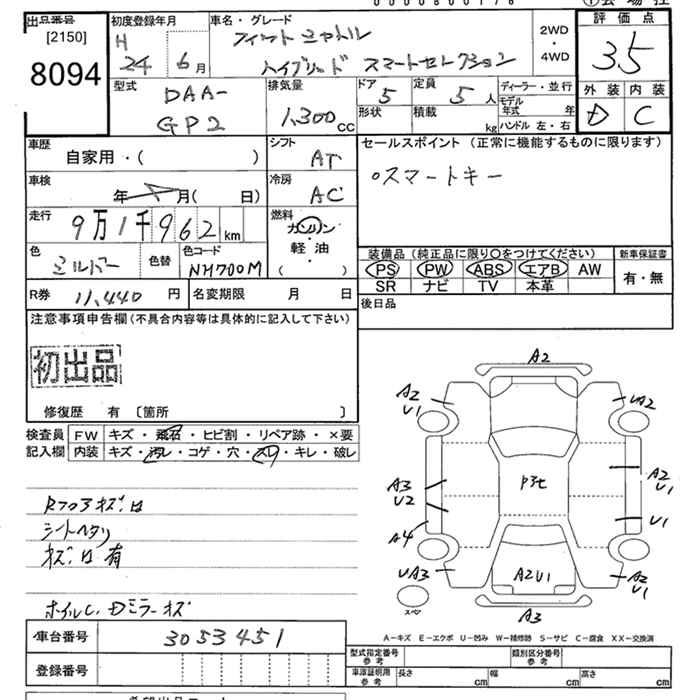 出品番号
[2150]
8094
初度登録年月
H
24 6月
車名・グレード
フィット シャトル
ハイブリッド スマートセレクション
2WD
・
4WD
評価点
3.5
外装 内装
D C
型式
DAA-
GP2
排気量
1,300cc
ドア
5
定員
5人
形状
積載
kg
ディーラー・並行
モデル年式 年
ハンドル 左・右
車歴
自家用・( )
シフト
AT
セールスポイント(正常に機能するものに限ります)
○スマートキー
車検
年 月( 日)
冷房
AC
走行
9万1千962km
燃料
ガソリン
・
軽・油
( )
色
シルバー
色替
色コード
NH700M
装備品(純正品に限り○をつけてください)
PS PW ABS エアB AW
SR ナビ TV 本革
新車保証書
有・無
R券 11,440円
名変期限 月 日
後日品
注意事項申告欄(不具合内容等は具体的に記入して下さい)
初出品
修復歴 有 〔箇所 〕
検査員記入欄
FW キズ・飛石・ヒビ割・リペア跡・×要
内装 キズ・汚レ・コゲ・穴・スレ・キレ・破レ
シートヘタリ
キズ 凹 有
ホイルC, Dミラーキズ
A2
A2
U1
UA2
A3
U2
A2
U1
A4
U1
UA3
A2U1
A2
U1
A3
スペア
A-キズ E-エクボ U-凹み W-補修跡 S-サビ C-腐食 XX-交換済
車台番号 3053451
登録番号
型式指定番号
参考
類別区分番号
参考
車庫証明用
参考
長さ cm 幅 cm 高さ cm